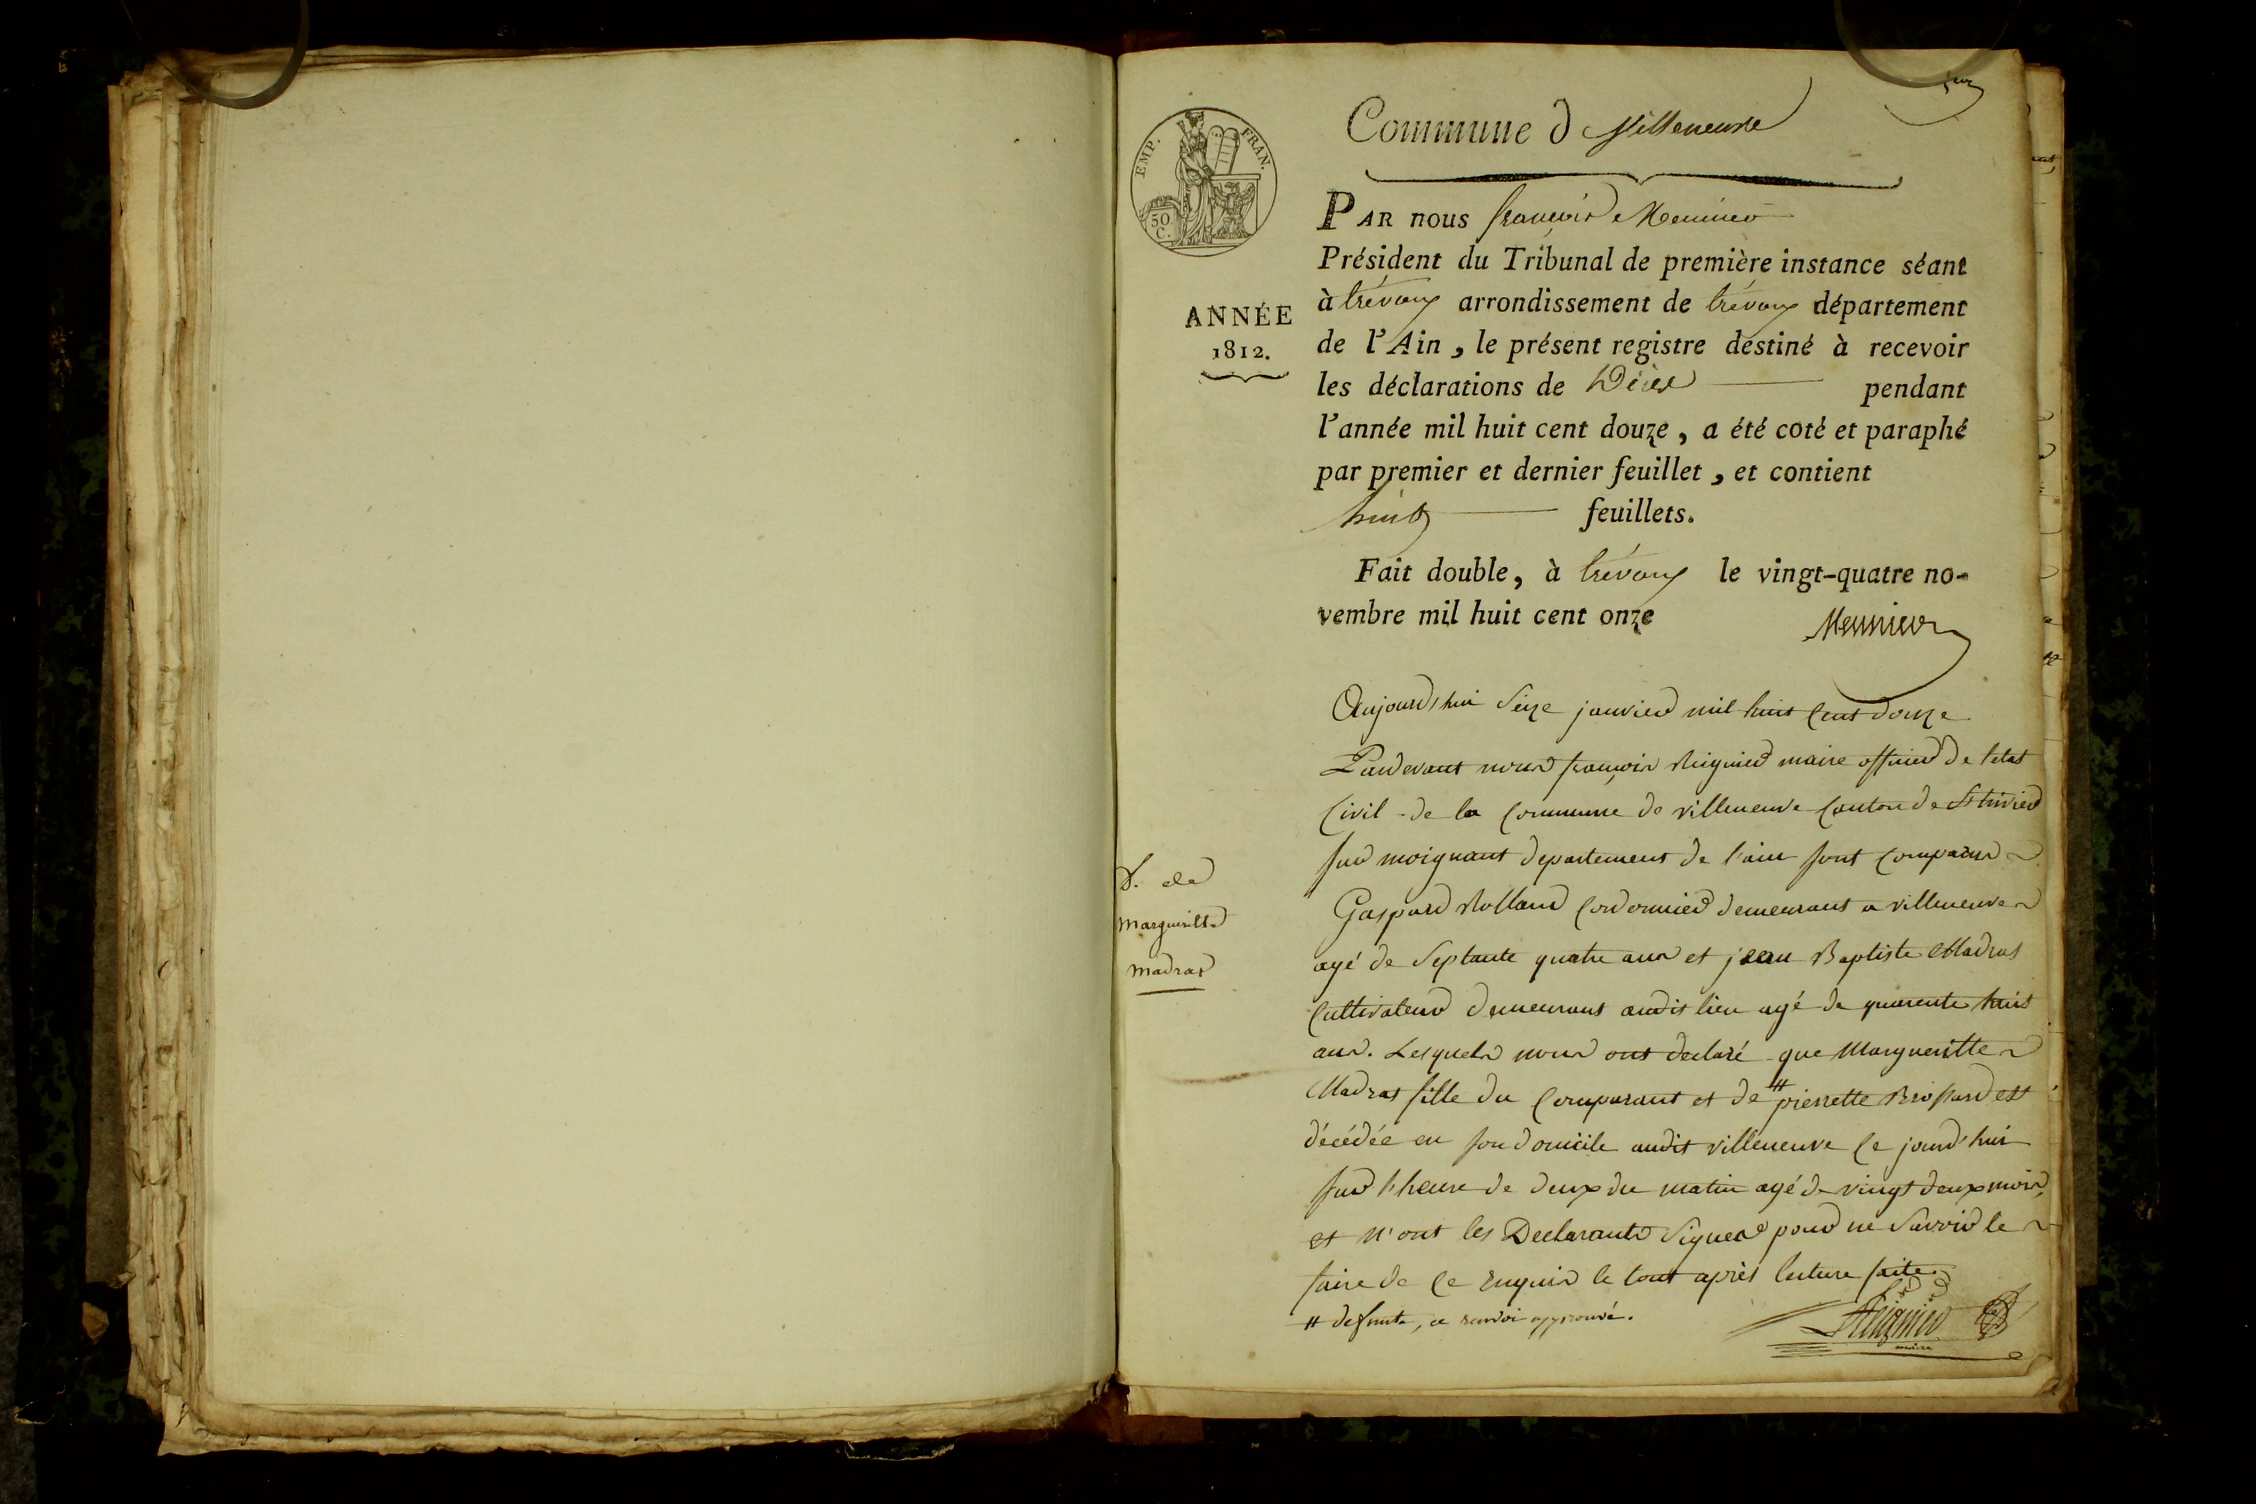 Commune d Villeneuve
EMP. FRAN.
50
C.
ANNÉE
1812.
PAR nous françois Meunier
Président du Tribunal de première instance séant
à trévoux arrondissement de trévoux département
de l'Ain, le présent registre destiné à recevoir
les déclarations de Décès pendant
l'année mil huit cent douze, a été coté et paraphé
par premier et dernier feuillet, et contient
huit feuillets.
Fait double, à trévoux le vingt-quatre no-
vembre mil huit cent onze
Meunier
Aujourd'hui Seize janvier mil huit Cent douze
Pardevant nous françois Reignier maire officier de l'etat
Civil de la Commune de villeneuve Canton de St trivier
sur moignant departement de l'ain sont comparus
Gaspard Rolland Cordonnier demeurant a villeneuve
agé de Septante quatre ans et jean Baptiste Madras
Cultivateur demeurant audit lieu agé de quarente huit
ans. Lesquels nous ont declaré que Margueritte
Madras fille du Comparant et de # pierrette Brossard est
décédée en son domicile audit villeneuve Ce jourd'hui
sur l'heure de deux du matin agé de vingt deux mois,
et n'ont les Declarants Signer pour ne Savoir le
faire de Ce enquis le tout après lecture faite.
# defunte, ce renvoi approuvé.
Reignier
maire
D. de
Margueritte
Madras